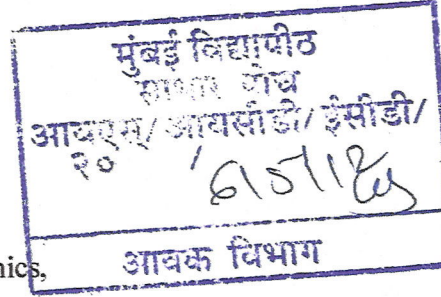 मुंबई विद्यापीठ
साभार पोच
आयएस/ आयसीडी/ ईसीडी/
२० /
आवक विभाग
nics,